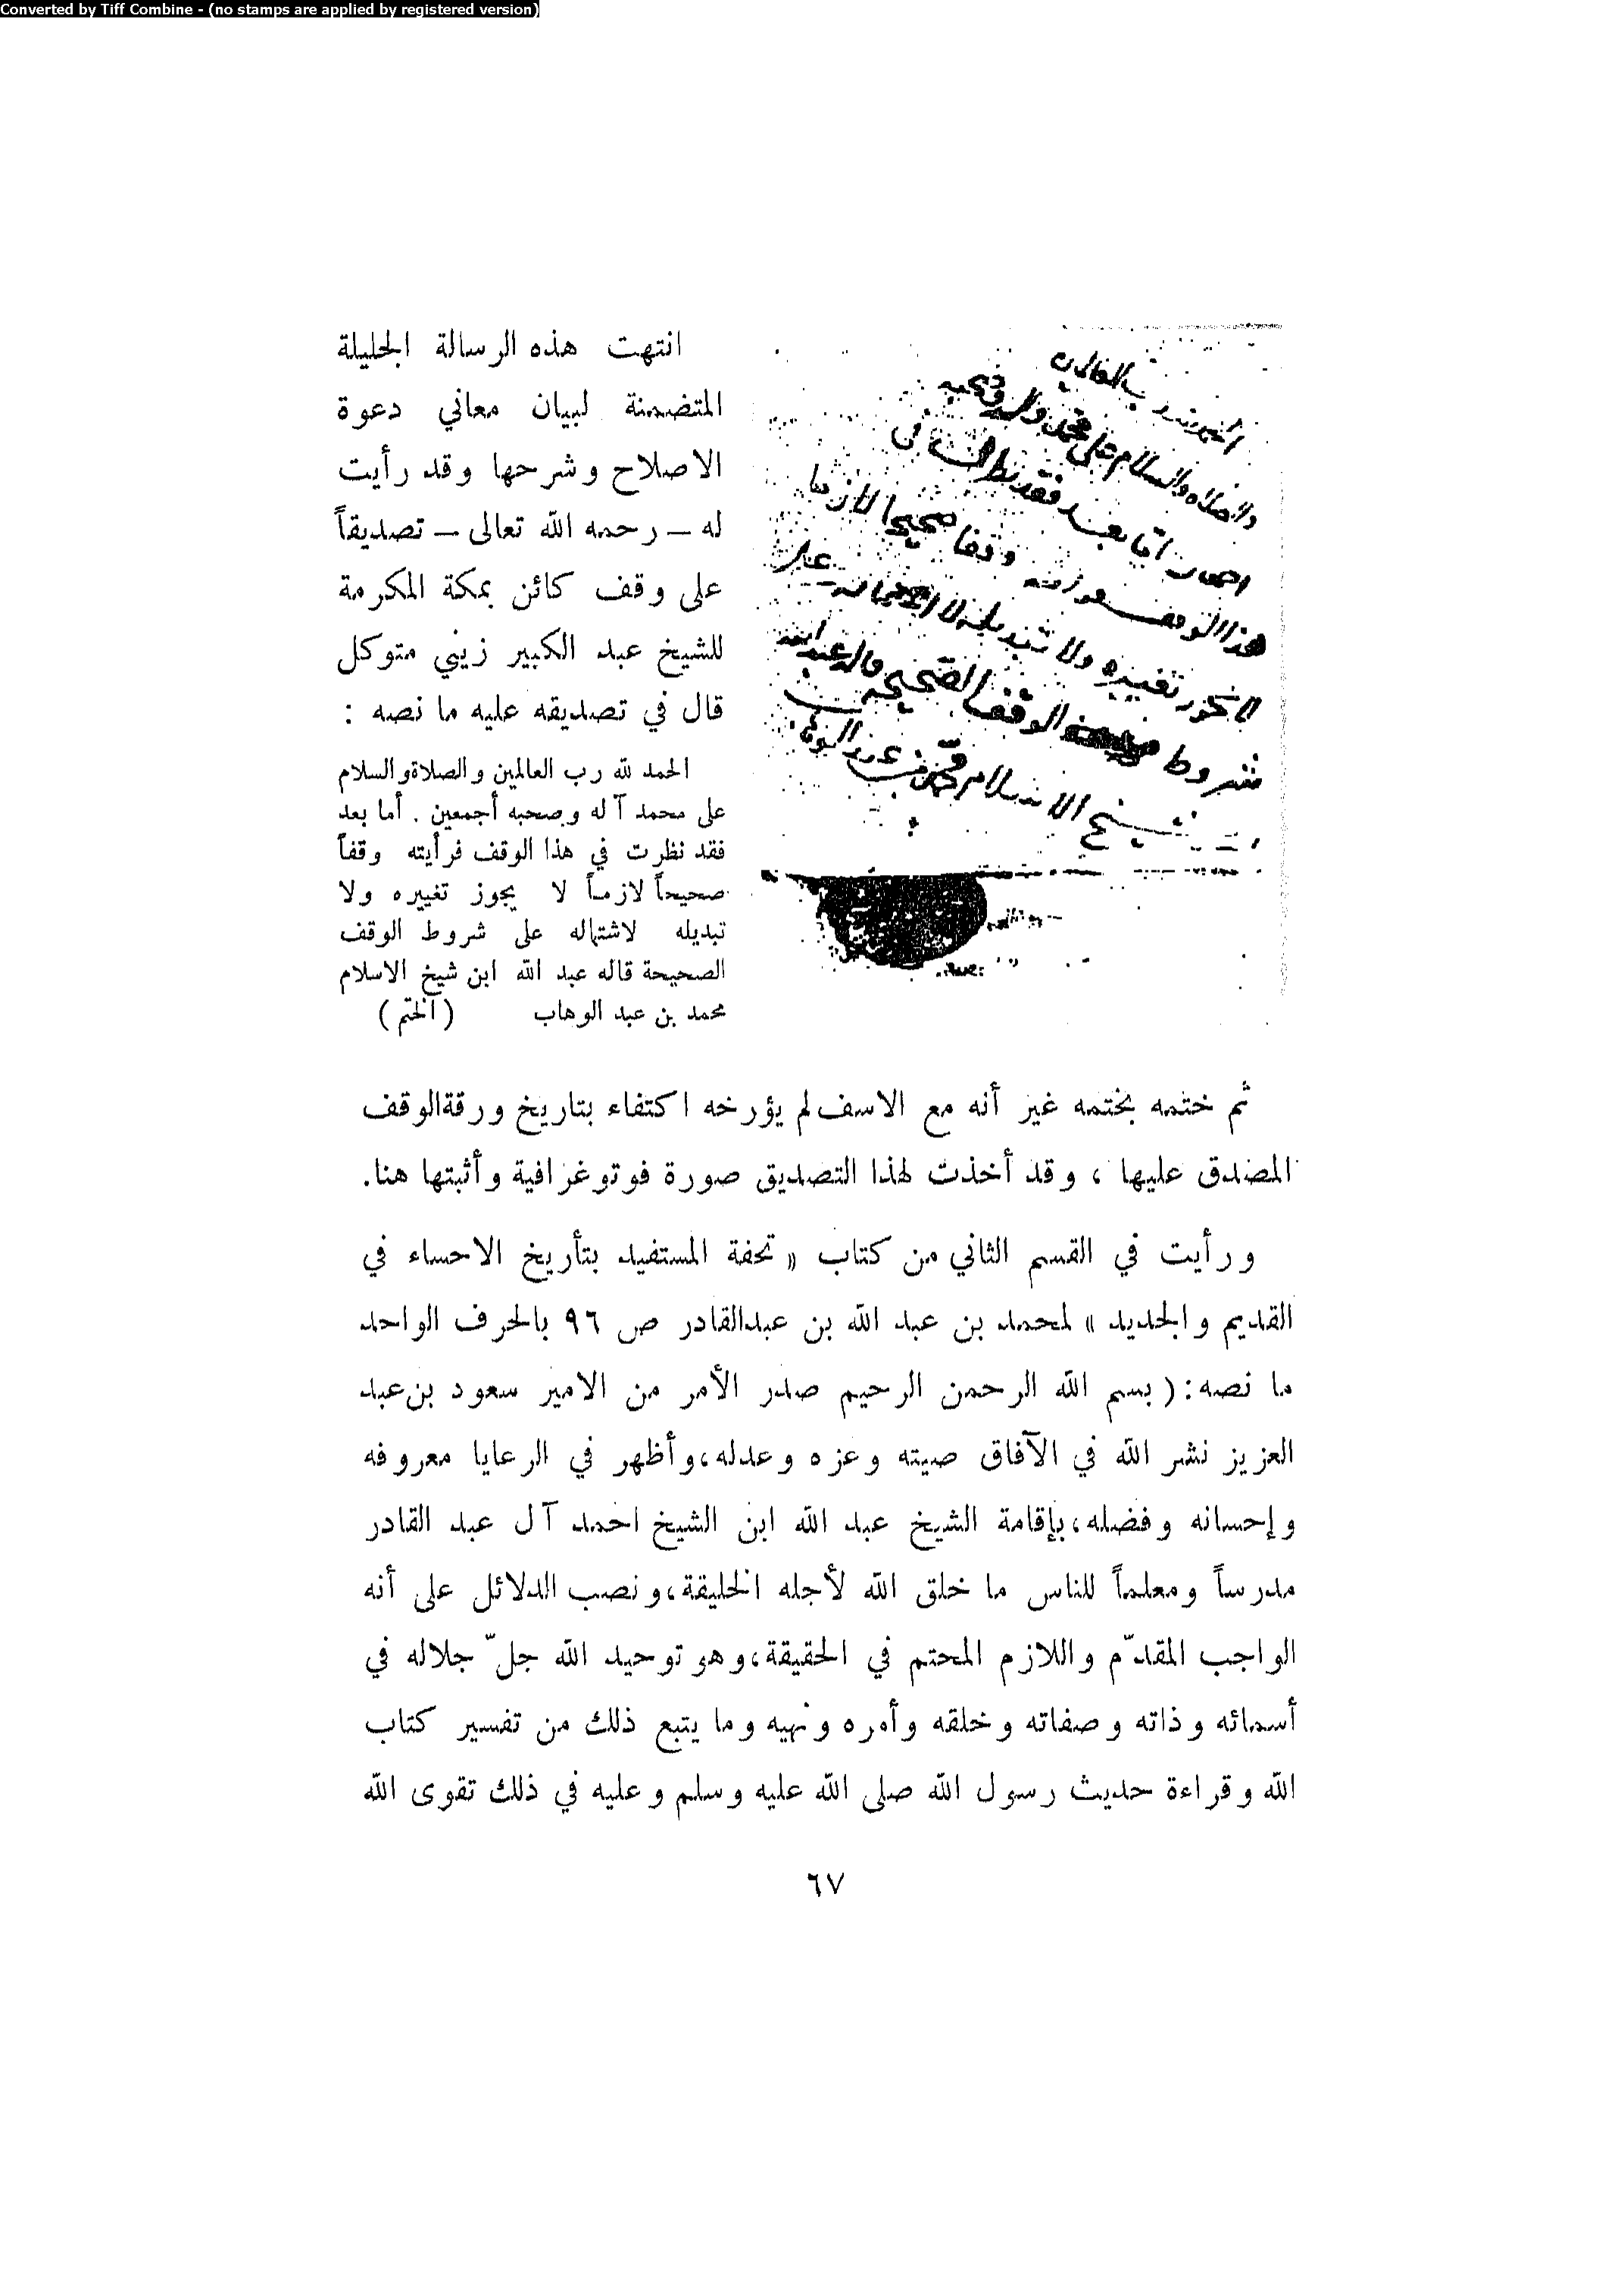 Converted by Tiff Combine - (no stamps are applied by registered version)
انتهت هذه الرسالة الجليلة
المتضمنة لبيان معاني دعوة
الاصلاح وشرحها وقد رأيت
له – رحمه الله تعالى – تصديقاً
على وقف كائن بمكة المكرمة
للشيخ عبد الكبير زيني متوكل
قال في تصديقه عليه ما نصه :
الحمد لله رب العالمين والصلاة والسلام
على محمد آله وصحبه أجمعين . أما بعد
فقد نظرت في هذا الوقف فرأيته وقفاً
صحيحاً لازماً لا يجوز تغييره ولا
تبديله لاشتماله على شروط الوقف
الصحيحة قاله عبد الله ابن شيخ الاسلام
محمد بن عبد الوهاب (الختم)
رب العالمين
والصلاه والسلام على محمد واله وصحبه
اما بعد فقد نظرت في
هذا الوقف وقفا صحيحا لازما
لا يجوز تغييره ولا تبديله على
شروط الوقف الصحيحه قاله عبد الله
شيخ الاسلام محمد بن عبد الوهاب
ثم ختمه بختمه غير أنه مع الاسف لم يؤرخه اكتفاء بتاريخ ورقة الوقف
المصدق عليها ، وقد أخذت لهذا التصديق صورة فوتوغرافية وأثبتها هنا.
ورأيت في القسم الثاني من كتاب « تحفة المستفيد بتأريخ الاحساء في
القديم والجديد » لمحمد بن عبد الله بن عبدالقادر ص ٩٦ بالحرف الواحد
ما نصه : ( بسم الله الرحمن الرحيم صدر الأمر من الامير سعود بن عبد
العزيز نشر الله في الآفاق صيته وعزه وعدله ، وأظهر في الرعايا معروفه
وإحسانه وفضله ، بإقامة الشيخ عبد الله ابن الشيخ احمد آل عبد القادر
مدرساً ومعلماً للناس ما خلق الله لأجله الخليقة ، ونصب الدلائل على أنه
الواجب المقدّم واللازم المحتم في الحقيقة ، وهو توحيد الله جلّ جلاله في
أسمائه وذاته وصفاته وخلقه وأمره ونهيه وما يتبع ذلك من تفسير كتاب
الله وقراءة حديث رسول الله صلى الله عليه وسلم وعليه في ذلك تقوى الله
٦٧